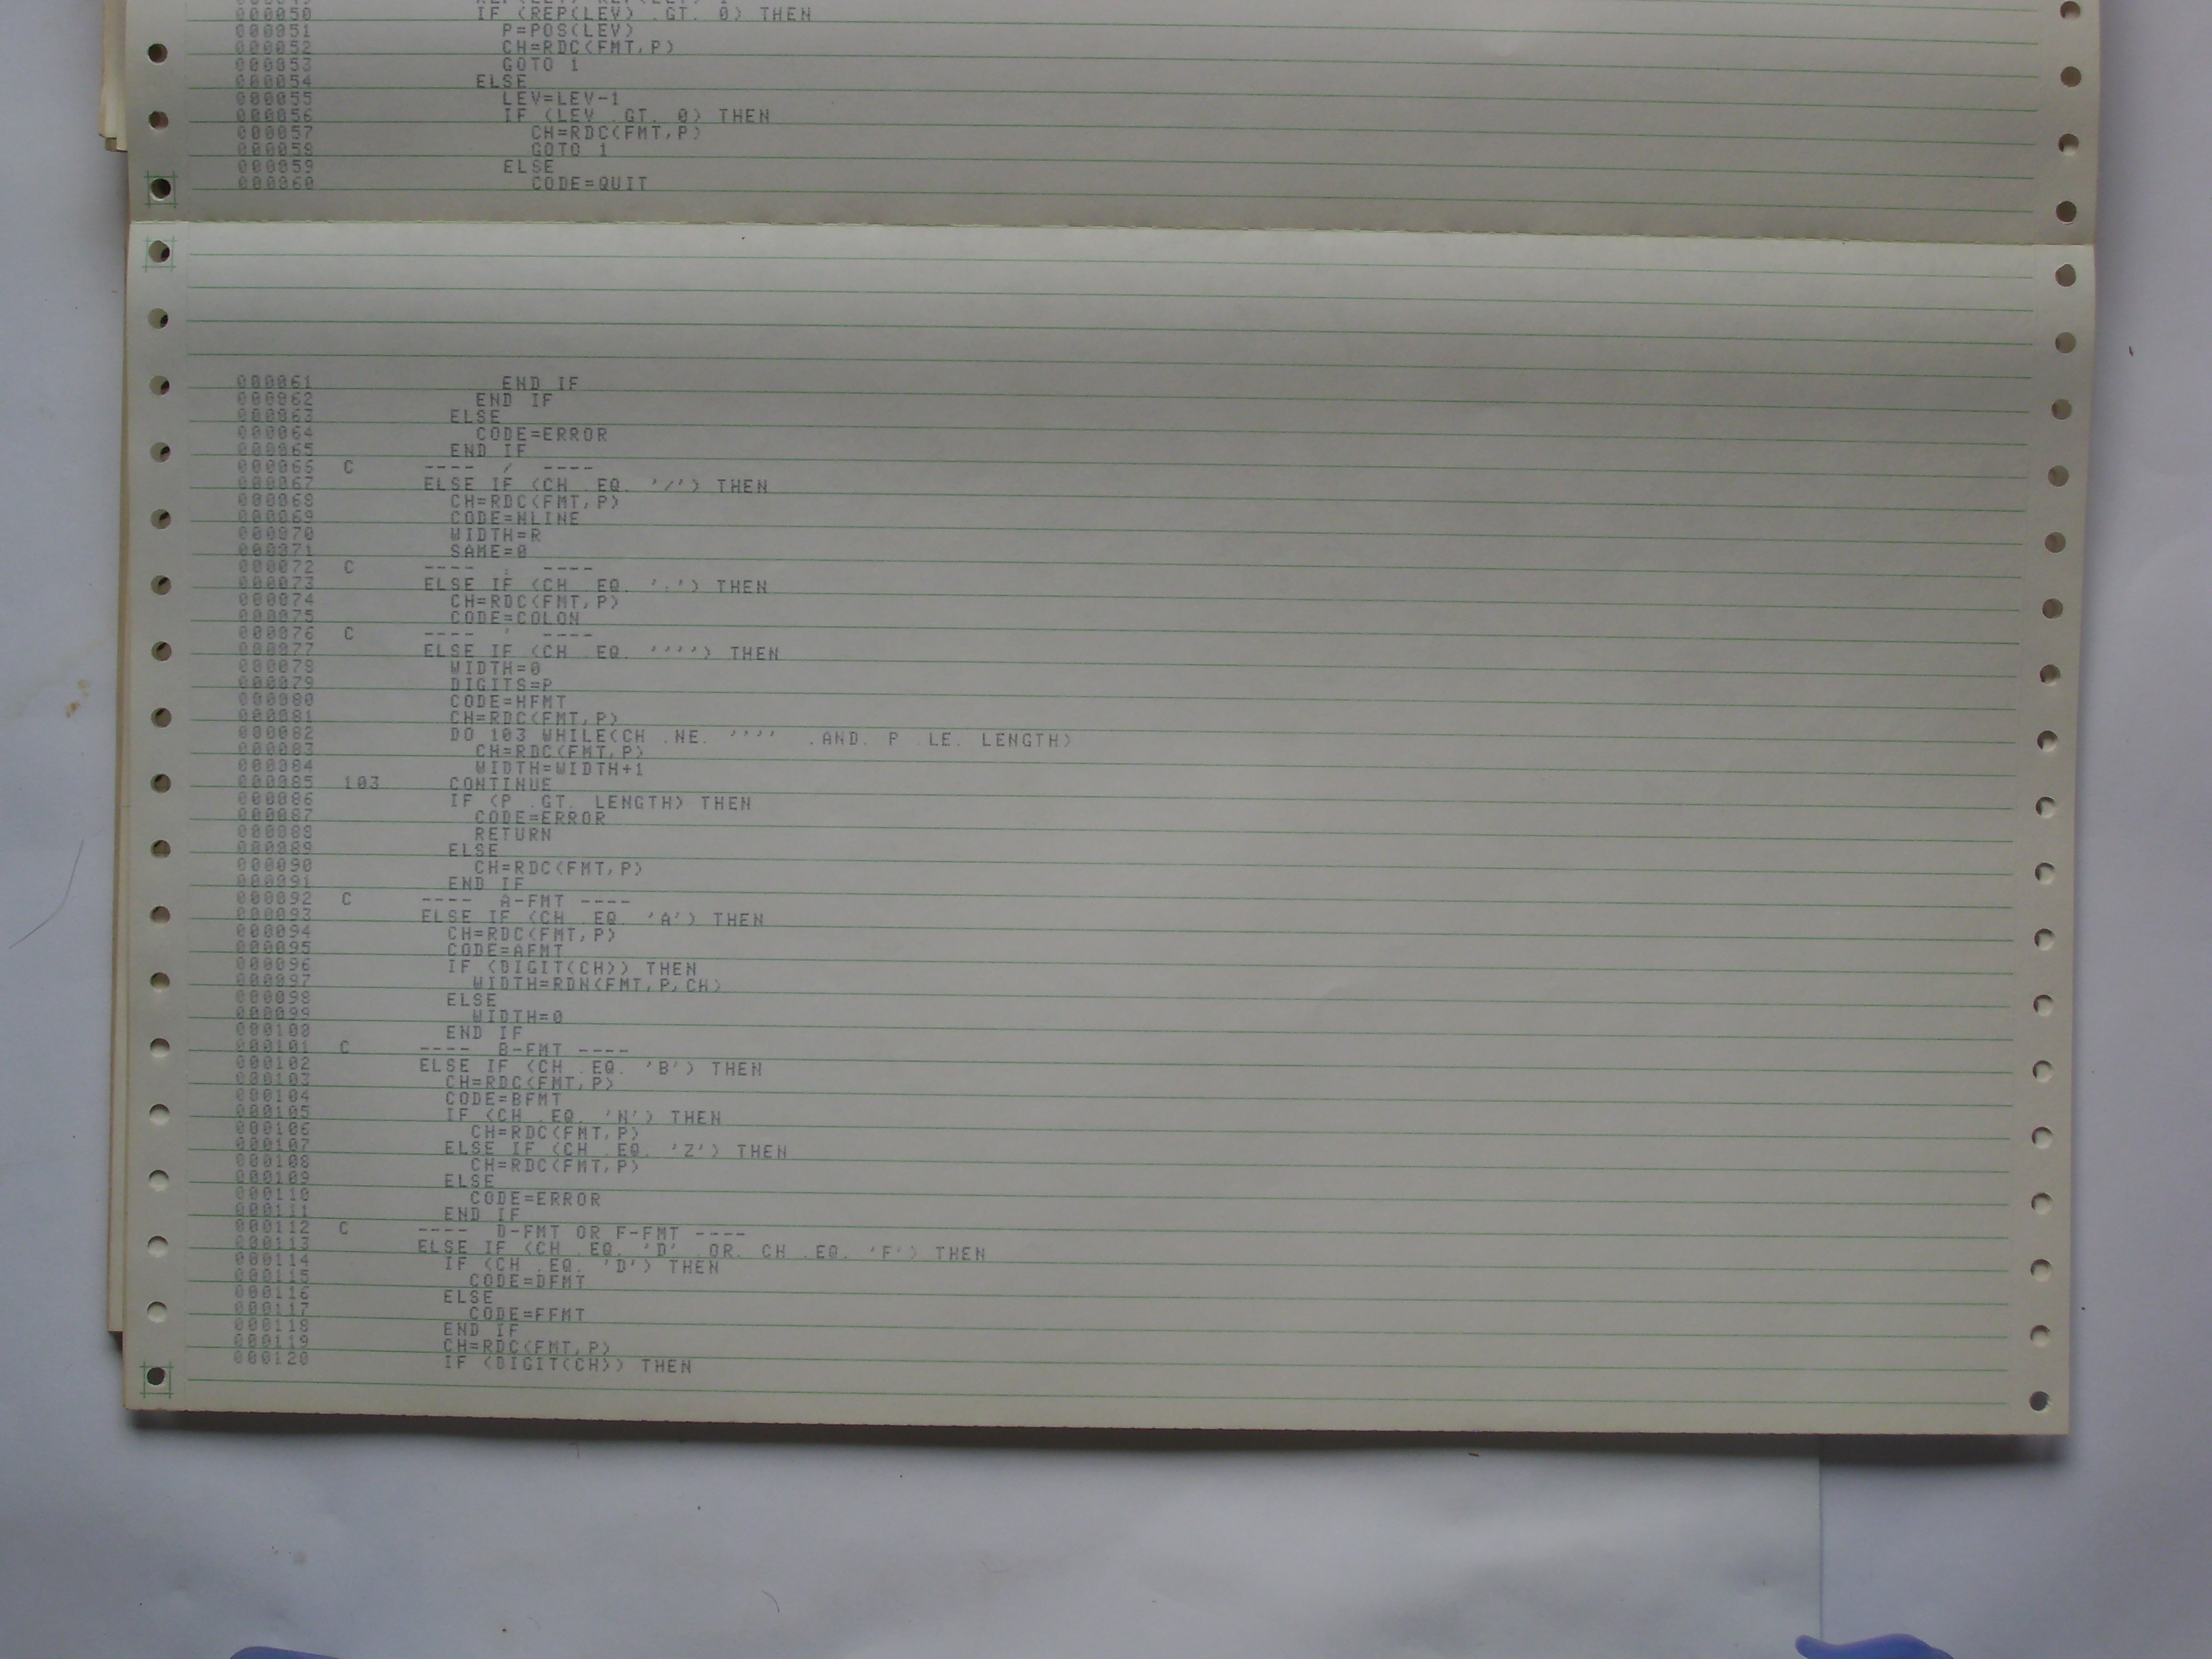 000050 IF (REP(LEV) .GT. 0) THEN
000051 P=POS(LEV)
000052 CH=RDC(FMT,P)
000053 GOTO 1
000054 ELSE
000055 LEV=LEV-1
000056 IF (LEV .GT. 0) THEN
000057 CH=RDC(FMT,P)
000058 GOTO 1
000059 ELSE
000060 CODE=QUIT
000061 END IF
000062 END IF
000063 ELSE
000064 CODE=ERROR
000065 END IF
000066 C ---- / ----
000067 ELSE IF (CH .EQ. '/') THEN
000068 CH=RDC(FMT,P)
000069 CODE=NLINE
000070 WIDTH=R
000071 SAME=0
000072 C ---- : ----
000073 ELSE IF (CH .EQ. ':') THEN
000074 CH=RDC(FMT,P)
000075 CODE=COLON
000076 C ---- ' ----
000077 ELSE IF (CH .EQ. '''') THEN
000078 WIDTH=0
000079 DIGITS=P
000080 CODE=HFMT
000081 CH=RDC(FMT,P)
000082 DO 103 WHILE(CH .NE. '''' .AND. P .LE. LENGTH)
000083 CH=RDC(FMT,P)
000084 WIDTH=WIDTH+1
000085 103 CONTINUE
000086 IF (P .GT. LENGTH) THEN
000087 CODE=ERROR
000088 RETURN
000089 ELSE
000090 CH=RDC(FMT,P)
000091 END IF
000092 C ---- A-FMT ----
000093 ELSE IF (CH .EQ. 'A') THEN
000094 CH=RDC(FMT,P)
000095 CODE=AFMT
000096 IF (DIGIT(CH)) THEN
000097 WIDTH=RDN(FMT,P,CH)
000098 ELSE
000099 WIDTH=0
000100 END IF
000101 C ---- B-FMT ----
000102 ELSE IF (CH .EQ. 'B') THEN
000103 CH=RDC(FMT,P)
000104 CODE=BFMT
000105 IF (CH .EQ. 'N') THEN
000106 CH=RDC(FMT,P)
000107 ELSE IF (CH .EQ. 'Z') THEN
000108 CH=RDC(FMT,P)
000109 ELSE
000110 CODE=ERROR
000111 END IF
000112 C ---- D-FMT OR F-FMT ----
000113 ELSE IF (CH .EQ. 'D' .OR. CH .EQ. 'F') THEN
000114 IF (CH .EQ. 'D') THEN
000115 CODE=DFMT
000116 ELSE
000117 CODE=FFMT
000118 END IF
000119 CH=RDC(FMT,P)
000120 IF (DIGIT(CH)) THEN